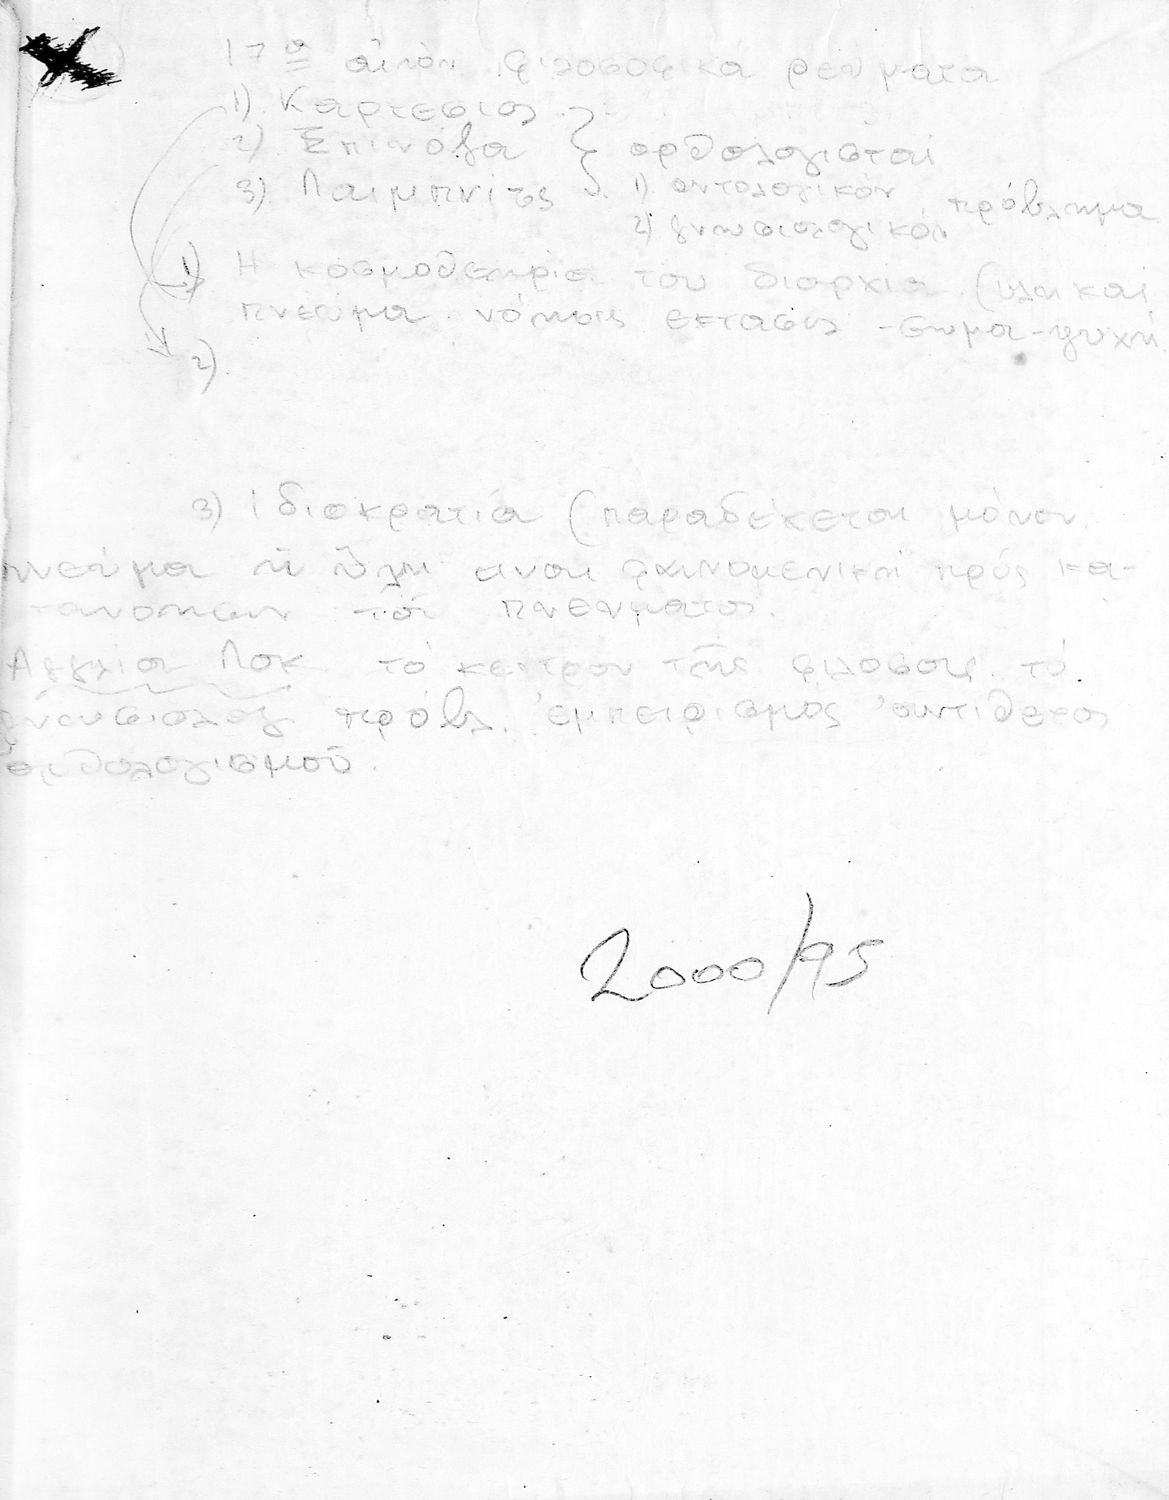 17ος αἰών φιλοσοφικα ρεύματα
1) Καρτεσιος
2) Σπινόζα } ορθολογισταί
3) Λαιμπνίτς 1) οντολογικόν πρόβλημα
2) γνωσιολογικόν
1) Η κοσμοθεωρία του διαρχία (υλη και
πνεύμα νόησις εκτασις - σωμα - ψυχή
2)
3) ιδιοκρατία (παραδέχεται μόνον
πνεύμα ἡ ὕλη φαινομενική πρός κα-
τανοησιν τοῦ πνευματος.
Αγγλια Λοκ τό κεντρον τῆς φιλοσοφ. τό
γνωσιολογ πρόβλ. ἐμπειρισμός ἀντιθετος
ὀρθολογισμοῦ.
2000/95